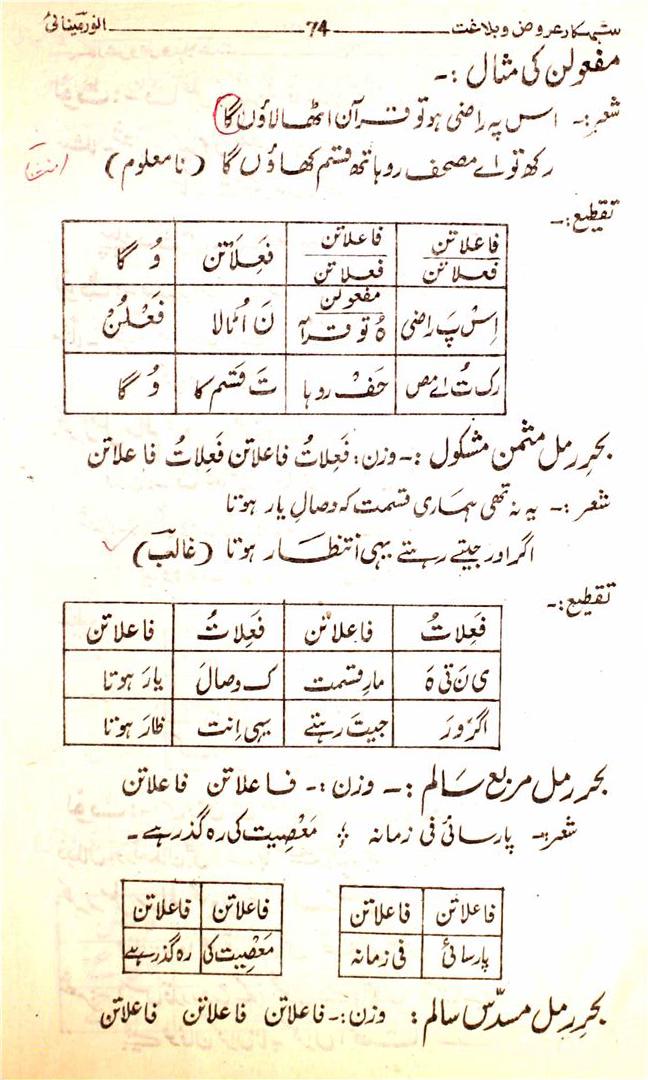 شہکار عروض و بلاغت 74 انور مینائی
مفعولن کی مثال :-
شعر:- اس پہ راضی ہو تو قرآن اٹھا لاؤں گا
رکھ تو اے مصحف رو ہاتھ قسم کھاؤں گا (نامعلوم)
تقطیع:-
فاعلاتن فاعلاتن فَعِلاَتن وُ گا
فعلاتن فعلاتن
اِس پَ راضی مفعولن ہُ تو قرآ نَ اُٹالا فَعْلُنْ
رک تُ اے مص حَفْ رو ہا تَ قَسم کا وُ گا
بحرِ رمل مثمن مشکول :- وزن: فَعِلاتُ فاعلاتن فَعِلاتُ فاعلاتن
شعر:- یہ نہ تھی ہماری قسمت کہ وصالِ یار ہوتا
اگر اور جیتے رہتے یہی انتظار ہوتا (غالب)
تقطیع:-
فَعِلاتُ فاعلاتن فَعِلاتُ فاعلاتن
ی نَ تی ہَ مارِ قسمت ک وصالِ یارَ ہوتا
اگرَورَ جیتَ رہتے یہی اِنت ظارَ ہوتا
بحر رمل مربع سالم :- وزن:- فاعلاتن فاعلاتن
شعر:- پارسائی فی زمانہ ؛ مَعْصِیت کی رہ گذر ہے۔
فاعلاتن فاعلاتن فاعلاتن فاعلاتن
پارسائی فی زمانہ مَعْصِیت کی رہ گذر ہے
بحرِ رمل مسدّس سالم: وزن:- فاعلاتن فاعلاتن فاعلاتن